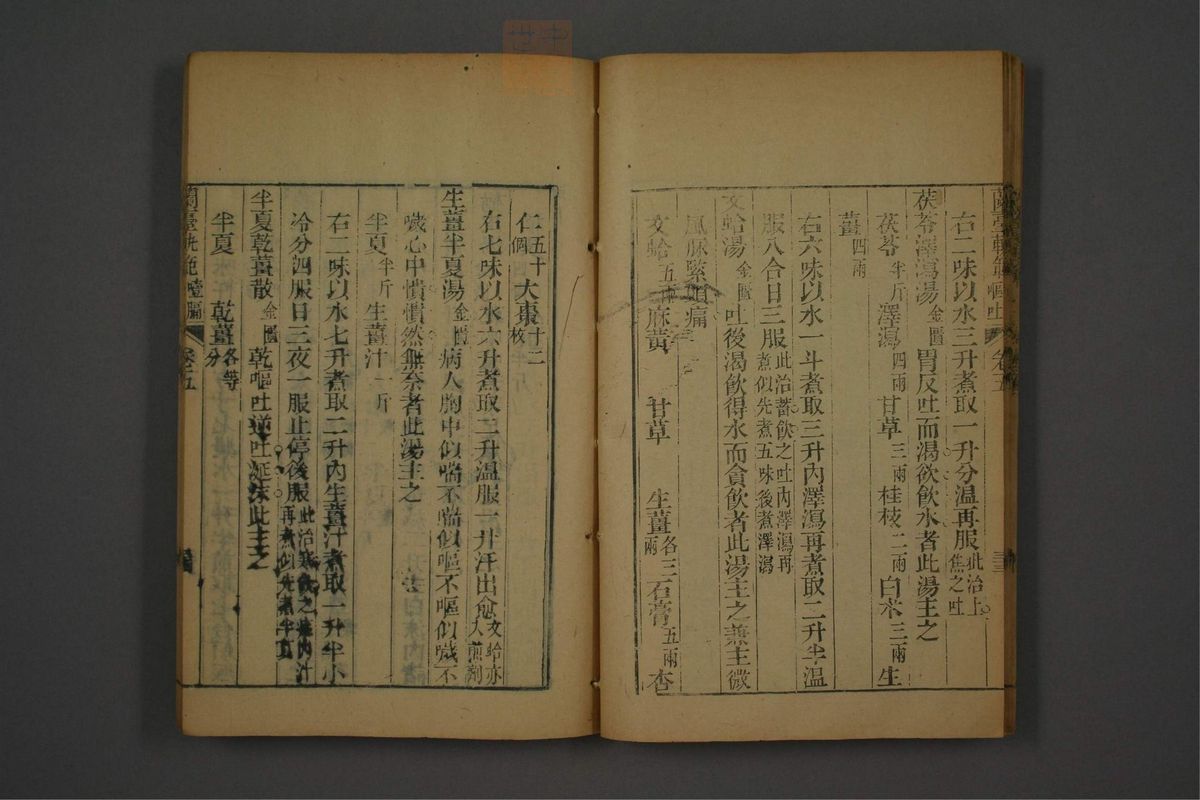 蘭臺軌範 嘔吐 卷五
右二味以水三升煮取一升分溫再服此治上焦之吐
茯苓澤瀉湯金匱胃反吐而渴欲飲水者此湯主之
茯苓半斤澤瀉四兩甘草二兩桂枝二兩白朮三兩生
薑四兩
右六味以水一斗煮取三升內澤瀉再煮取二升半溫
服八合日三服此治蓄飲之吐內澤瀉再煮似先煮五味後煮澤瀉
文蛤湯金匱吐後渴欲得水而貪飲者此湯主之兼主微
風脉緊頭痛
文蛤五兩麻黃 甘草 生薑各三兩石膏五兩杏
仁五十個大棗十二枚
右七味以水六升煮取二升溫服一升汗出愈文蛤亦入煎劑
生薑半夏湯金匱病人胸中似喘不喘似嘔不嘔似噦不
噦心中憒憒然無奈者此湯主之
半夏半斤生薑汁一斤
右二味以水七升煮取二升內生薑汁煮取一升半小
冷分四服日三夜一服止停後服此治寒飲之 內汁再煮似先煮半夏
半夏乾薑散金匱乾嘔吐逆吐涎沫此主之
半夏 乾薑各等分
蘭臺軌範 噎膈 卷五